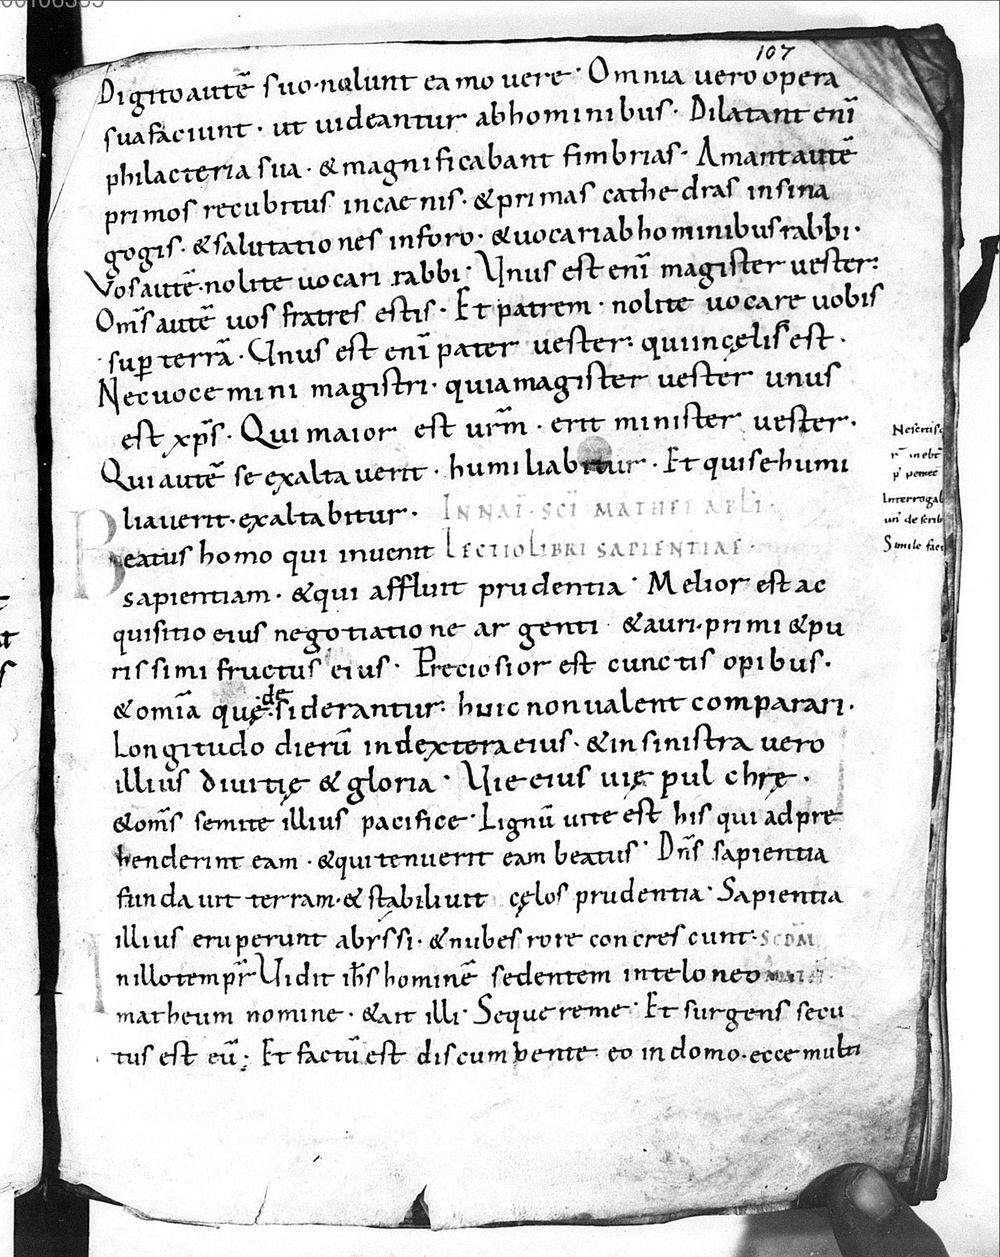 00106505
107
Digito autē suo· nolunt ea mouere· Omnia uero opera
sua faciunt· ut uideantur ab hominibus· Dilatant enī
philacteria sua· & magnificabant fimbrias· Amant autē
primos recubitus in caenis· & primas cathedras in sina
gogis· & salutationes in foro· & uocari ab hominibus rabbi·
Vos autē· nolite uocari rabbi· Unus est enī magister uester:
Om̅s autē uos fratres estis· Et patrem· nolite uocare uobis
sup̱ terrā· Unus est enī pater uester: qui in cęlis est·
Nec uocemini magistri· quia magister uester unus
est xp̅s· Qui maior est ur̅m· erit minister uester·
Qui autē se exaltauerit· humiliabitur· Et qui se humi
liauerit· exaltabitur· IN NAT̅· SC̅I MATHEI AP̅LI·
Beatus homo qui inuenit LECTIO LIBRI SAPIENTIAE·
sapientiam· & qui affluit prudentia· Melior est ac
quisitio eius negotiatione argenti· & auri· primi & pu
rissimi fructus eius· Preciosior est cunctis opibus·
& omīa quę desiderantur: huic non ualent comparari·
Longitudo dierū in dextera eius· & in sinistra uero
illius diuitię & gloria· Uie eius uię pulchrę·
& om̅s semite illius pacifice· Lignū uite est his qui adpre
henderint eam· & qui tenuerit eam beatus· Dn̅s sapientia
fundauit terram· & stabiliuit cęlos prudentia· Sapientia
illius eruperunt abyssi· & nubes rore concrescunt· SCDM
In illo tempr̅ Uidit ih̅s hominē sedentem in teloneo MAT
matheum nomine· & ait illi· Sequere me· Et surgens secu
tus est eū; Et factū est discumbente eo in domo· ecce multi
Interrogal
Simile faci